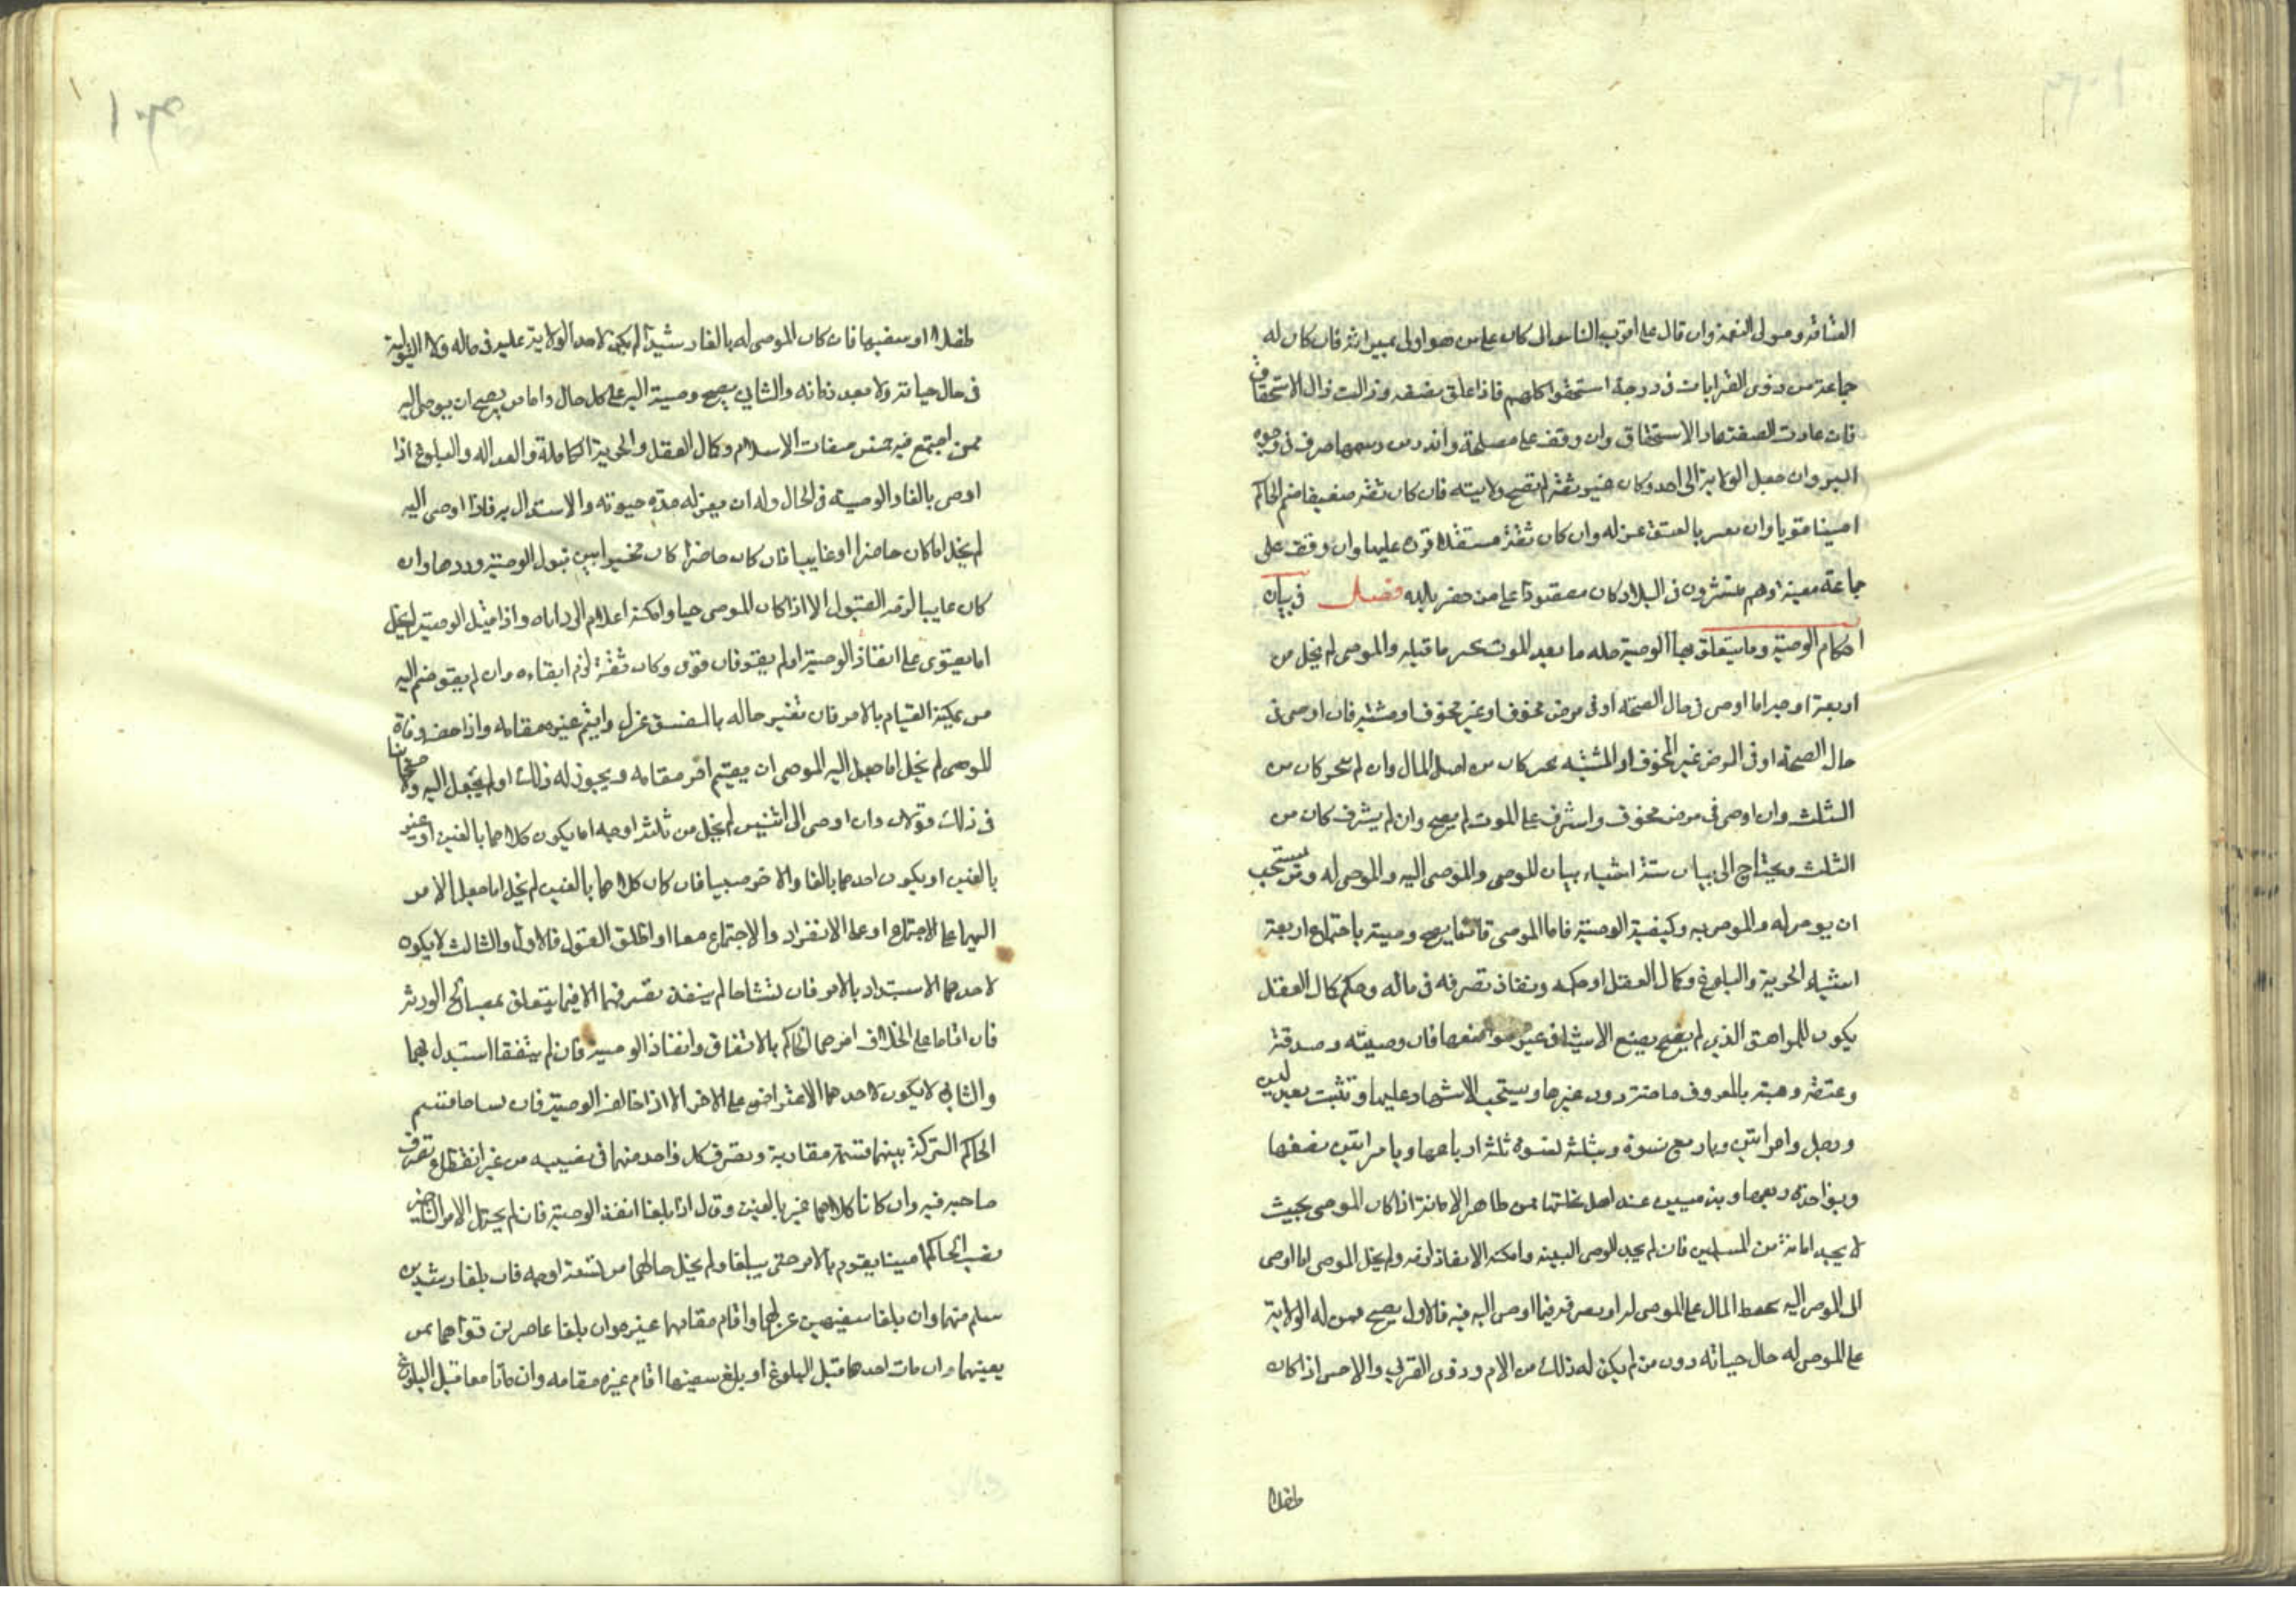 العتاقة ومولى النعمة وان قال على اقرب الناس الى كان على من هو اولى بميراثه فان كان له
جماعة من ذوى القرابات فى درجة استحقوا كلهم فاذا علق بصفه وزالت زال الاستحقاق
فان عادت الصفة عاد الاستحقاق وان وقف على مصلحة واندرس رسمها صرف فى وجوه
البر وان جعل الولاية الى احد وكان غير ثقة لم تصح ولايته فان كان ثقة ضعيفا ضم الحاكم
امينا قويا وان بالفسق عزله وان كان ثقة مستقلا قره عليها وان وقف على
جماعة معينة وهم منتشرون فى البلاد كان مقصورا على من حضر بالبلد فصل فى بيان
احكام الوصية وما يتعلق بها الوصية حله ما بعد الموت ما قبله والموصى لم يخل من
اربعة اوجه اما اوصى فى حال الصحة او فى مرض مخوف او غير مخوف او مشتبه فان اوصى فى
حال الصحة او فى المرض غير المخوف او المشتبه كان من اصل المال وان لم كان من
الثلث وان اوصى فى مرض مخوف واشرف على الموت لم يصح وان لم يشرف كان من
الثلث ويحتاج الى بيان ستة اشياء بيان الموصى والموصى اليه والموصى له ومن يستحب
ان يوصى له والموصى به وكيفية الوصية فاما الموصى فانما يصح وصيته باجتماع اربعة
اشياء الحرية والبلوغ وكمال العقل او حكمه ونفاذ تصرفه فى ماله وحكم كمال العقل
يكون للمراهق الذى لم يضع الاشياء فى غير مواضعها فان وصيته وصدقته
وعتقه وهبته بالمعروف ماضية دون غيرها ويستحب الاشهاد عليها وتثبت بعدلين
ورجل وامراتين وباربع نسوة وبثلث نسوة ثلثة ارباعها وبامراتين نصفها
وبواحدة ربعها وبذميين عند اهل نحلتهما ممن ظاهره الامانة اذا كان الموصى بحيث
لا يجد امانة من المسلمين فان لم يجد الوصى البينه وامكنه الانفاذ لزمه ولم يخل الموصى اما اوصى
الى الموصى اليه بحفظ المال على الموصى له او بصرفه فيما اوصى اليه فيه فالاول يصح ممن له الولاية
على الموصى له حال حياته دون من لم يكن له ذلك من الام وذوى القربى والاحسن اذا كان
طفلا
طفلا او سفيها فان كان الموصى له بالغا رشيدا لم يكن لاحد الولاية عليه فى ماله ولا التولية
فى حال حياته ولا بعد والثانى يصح وصيته اليه على كل حال واما من يصح ان يوصى اليه
ممن اجتمع فيه خمس صفات الاسلام وكمال العقل والحرية الكاملة والعداله والبلوغ اذا
اوصى بالغا والوصية فى الحال وله ان يعزله مدة حيوته والاستبدال به فاذا اوصى اليه
لم يخل اما كان حاضرا او غايبا فان كان حاضرا كان مخيرا بين قبول الوصية وردها وان
كان غايبا لزمه القبول الا اذا كان الموصى حيا وامكنه اعلام الرد اياه واذا قبل الوصية لم يخل
اما يقوى على انفاذ الوصية او لم يقو فان قوى وكان ثقة لزم ابقاءه وان لم يقو ضم اليه
من يمكنه القيام بالامر فان تغير حاله بالفسق عزل واقيم غيره مقامه واذا حضر وفاة
الموصى لم يخل اما جعل اليه الموصى ان يقيم اخر مقامه ويجوز له ذلك او لم يجعل اليه
فى ذلك قولان وان اوصى الى اثنين لم يخل من ثلثة اوجه اما يكون كلاهما بالغين او غير
بالغين او يكون احدهما بالغا والاخر صبيا فان كان كلاهما بالغين لم يخل اما جعل الامر
اليهما على الاجتماع او على الانفراد والاجتماع معا او اطلق القول فالاول والثالث لا يكون
لاحدهما الاستبداد بالامر فان تشاحا لم ينفذ تصرفهما الا فيما يتعلق بمصالح الورثة
فان اقاما على الخلاف امرهما الحاكم بالاتفاق وانفاذ الوصية فان لم يتفقا استبدل بهما
والثانى لا يكون لاحدهما الاعتراض على الاخر الا اذا خالف الوصية فان تشاحا قسم
الحاكم التركة بينهما قسمة مقاربة وتصرف كل واحد منهما فى نصيبه من غير انقطاع تصرف
صاحبه فيه وان كانا كلاهما غير بالغين وقال اذا بلغا انفذا الوصية فان لم يحتمل الامر التاخير
نصب الحاكم امينا يقوم بالامر حتى يبلغا ولم يخل حالهما من ستة اوجه فان بلغا رشيدين
سلم منهما وان بلغا سفيهين عزلهما واقام مقامهما غيرهما وان بلغا عاجزين قواهما بمن
يعينهما وان مات احدهما قبل البلوغ او بلغ سفيها اقام غيره مقامه وان ماتا معا قبل البلوغ